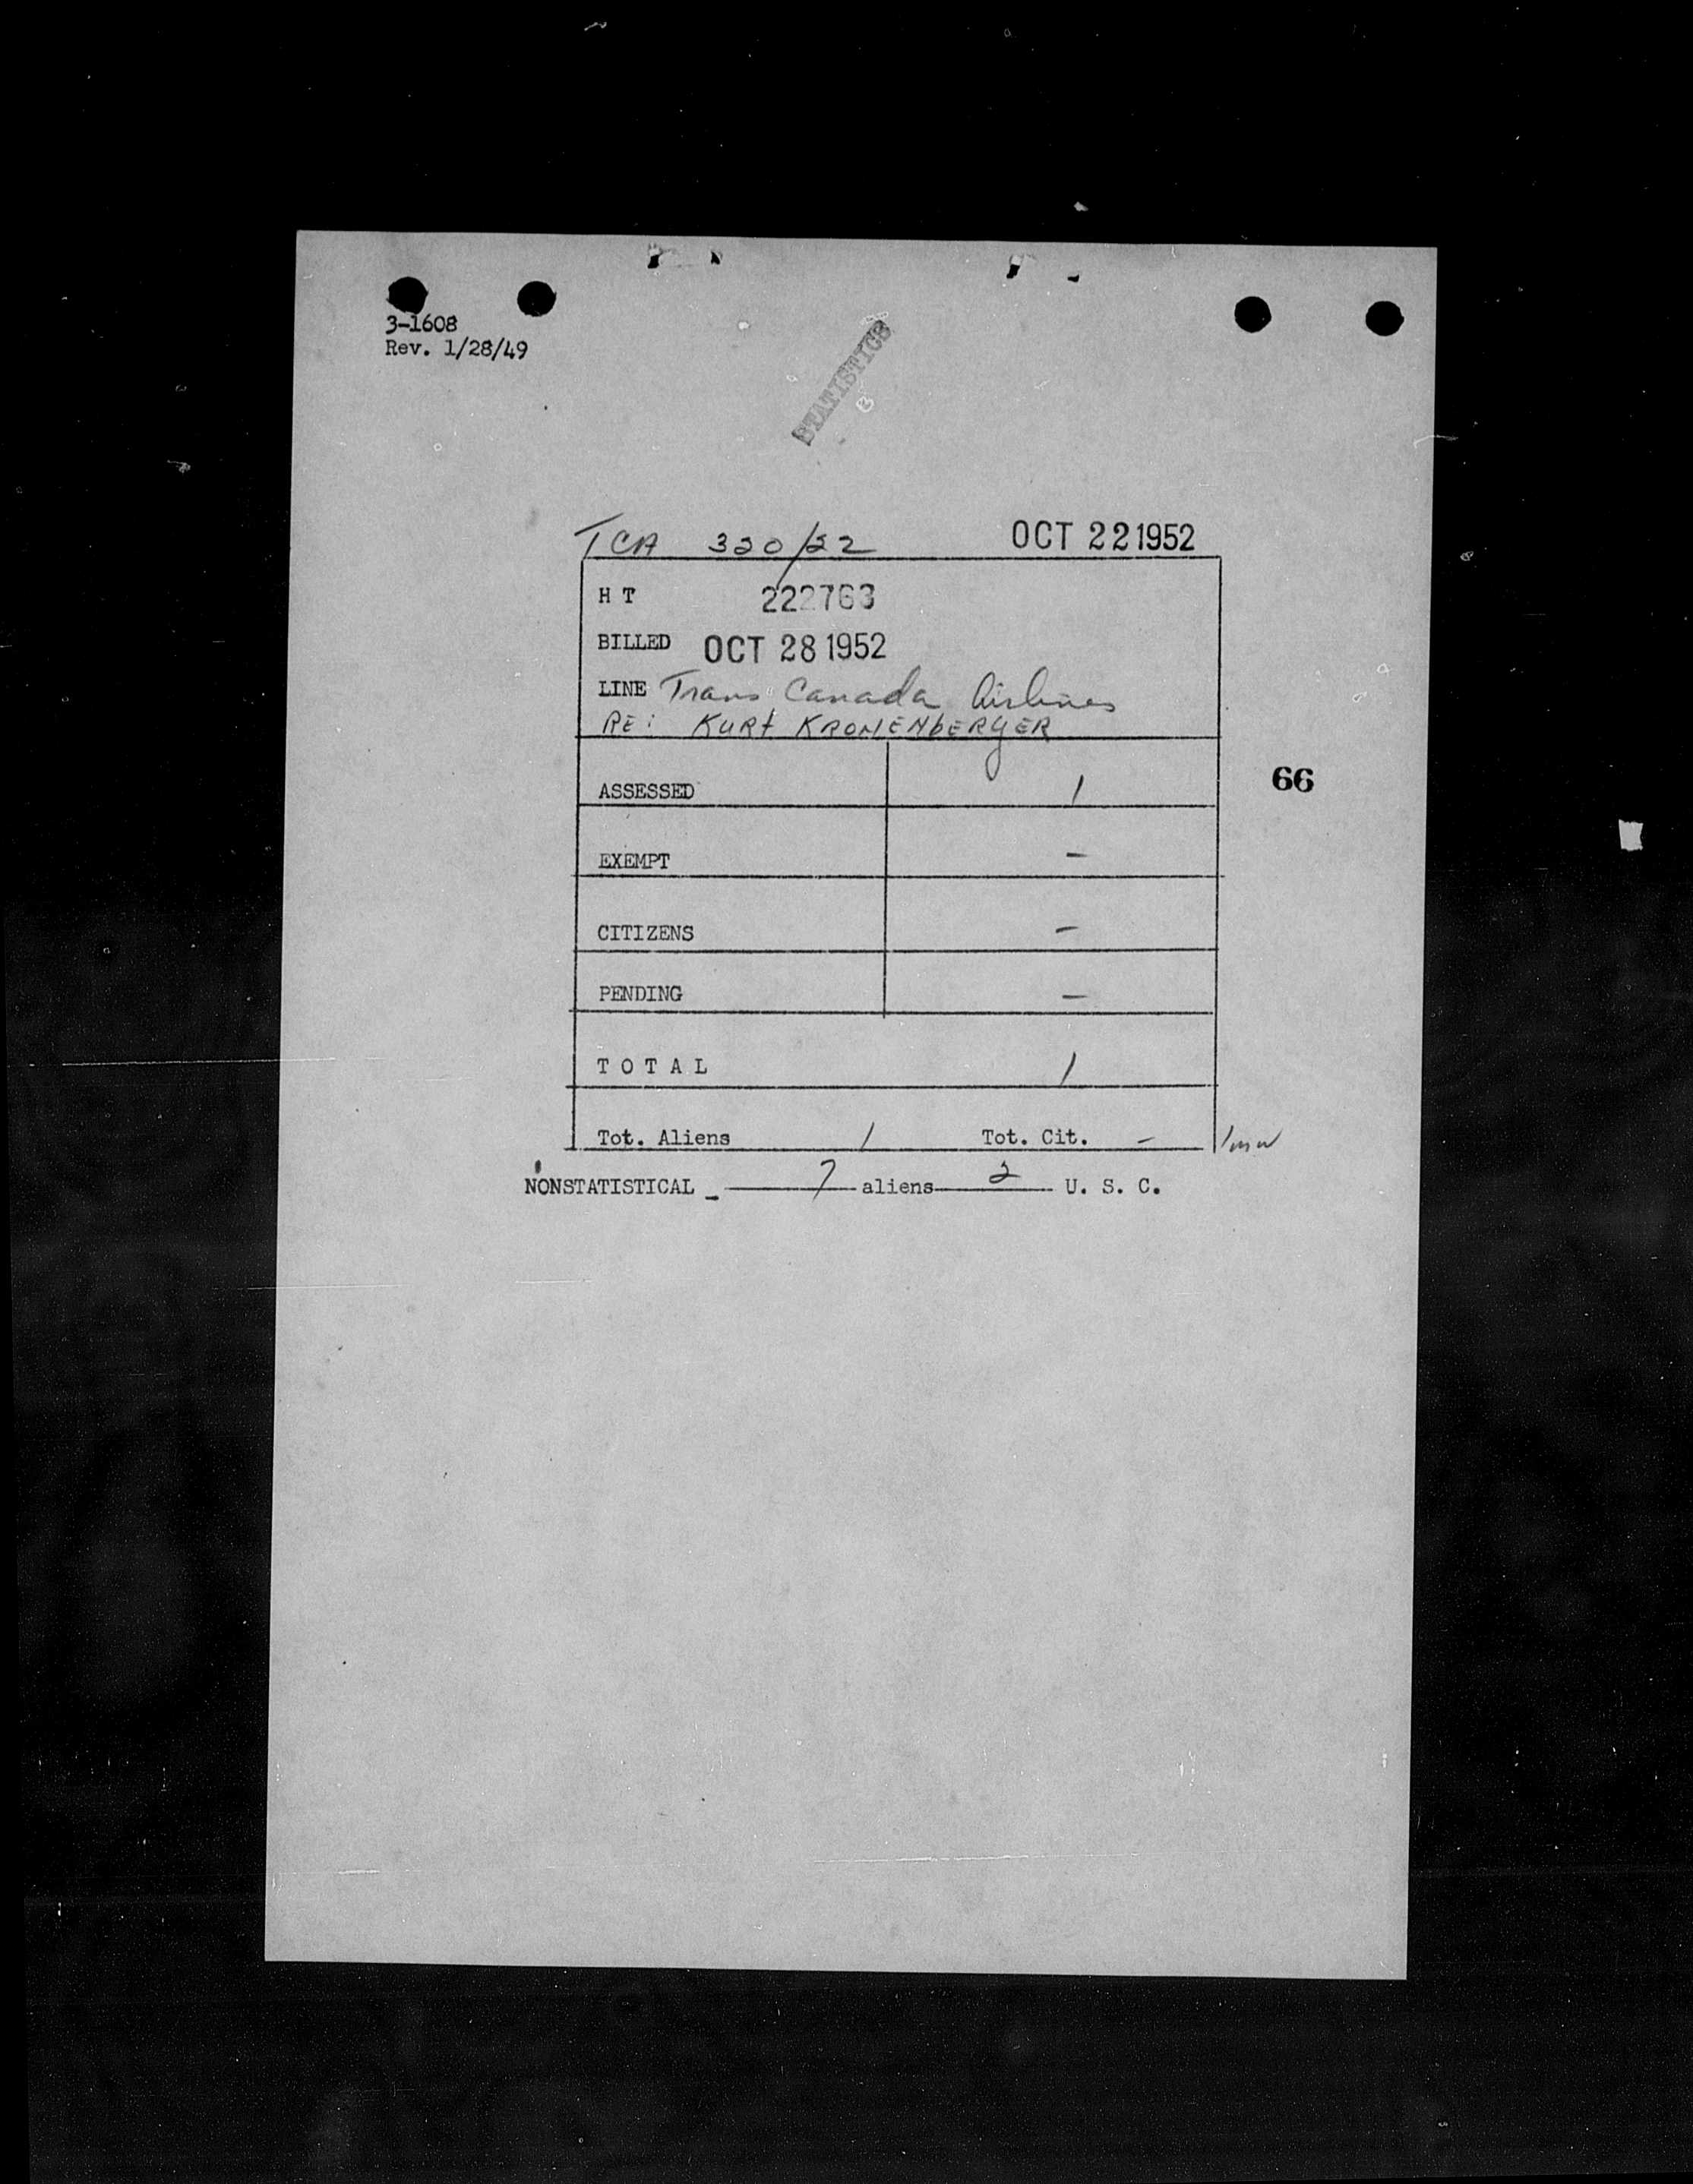 3-1608
Rev. 1/28/49
STATISTICS
TCA 320/22 OCT 22 1952
H T 222763
BILLED OCT 28 1952
LINE Trans Canada Airlines
RE: KURT KRONENBERGER
66
ASSESSED 1
EXEMPT -
CITIZENS -
PENDING -
T O T A L 1
Tot. Aliens 1 Tot. Cit. -
NONSTATISTICAL 7 aliens 2 U. S. C.